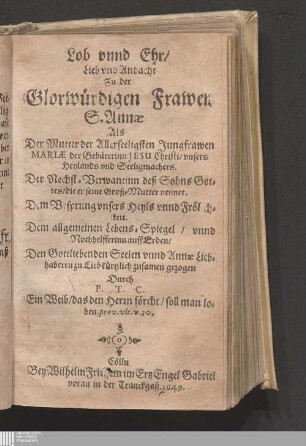 Lob vnnd Ehr/
Lieb vnd Andacht
Zu der
Glorwürdigen Frawen
S. Annæ
Als
Der Mutter der Allerseeligsten Jungfrawen
MARIÆ der Gebärerinn JESU Christi/ vnsers
Heylands vnd Seeligmachers.
Der Nechst-Verwantinn deß Sohns Got-
tes/ die er seine Groß-Mutter nennet.
Dem Vrsprung vnsers Heyls vnnd Fröl ch-
keit.
Dem allgemeinen Lebens-Spiegel/ vnnd
Nothhelfferinn auff Erden/
Den Gottliebenden Seelen vnnd Annæ Lieb-
haberen zu Lieb kürtzlich zusamen gezogen
Durch
P. T. C.
Ein Weib/ das den Herrn förcht/ soll man lo-
ben. prov. vlt. v. 30.
Cölln
Bey Wilhelm Friessem im Ertz Engel Gabriel
voran in der Tranckgaß. 1649.